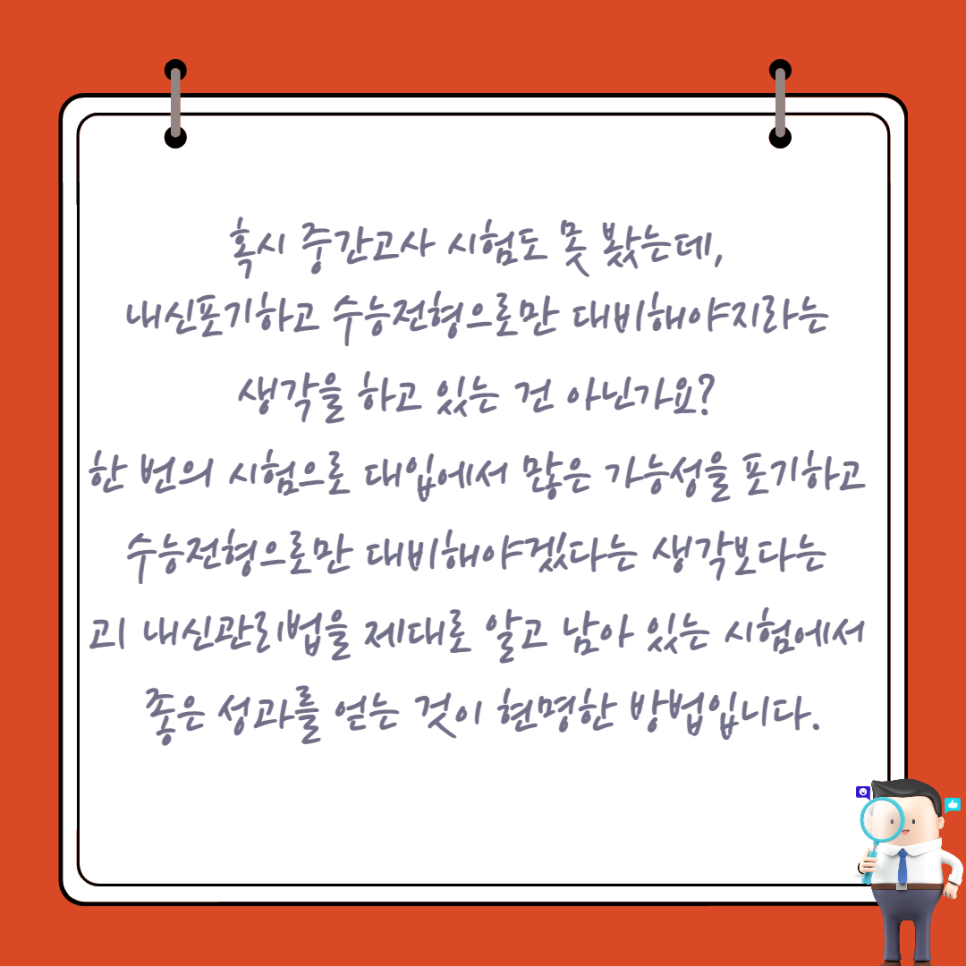 혹시 중간고사 시험도 못 봤는데,
내신포기하고 수능전형으로만 대비해야지라는
생각을 하고 있는 건 아닌가요?
한 번의 시험으로 대입에서 많은 가능성을 포기하고
수능전형으로만 대비해야겠다는 생각보다는
고1 내신관리법을 제대로 알고 남아 있는 시험에서
좋은 성과를 얻는 것이 현명한 방법입니다.